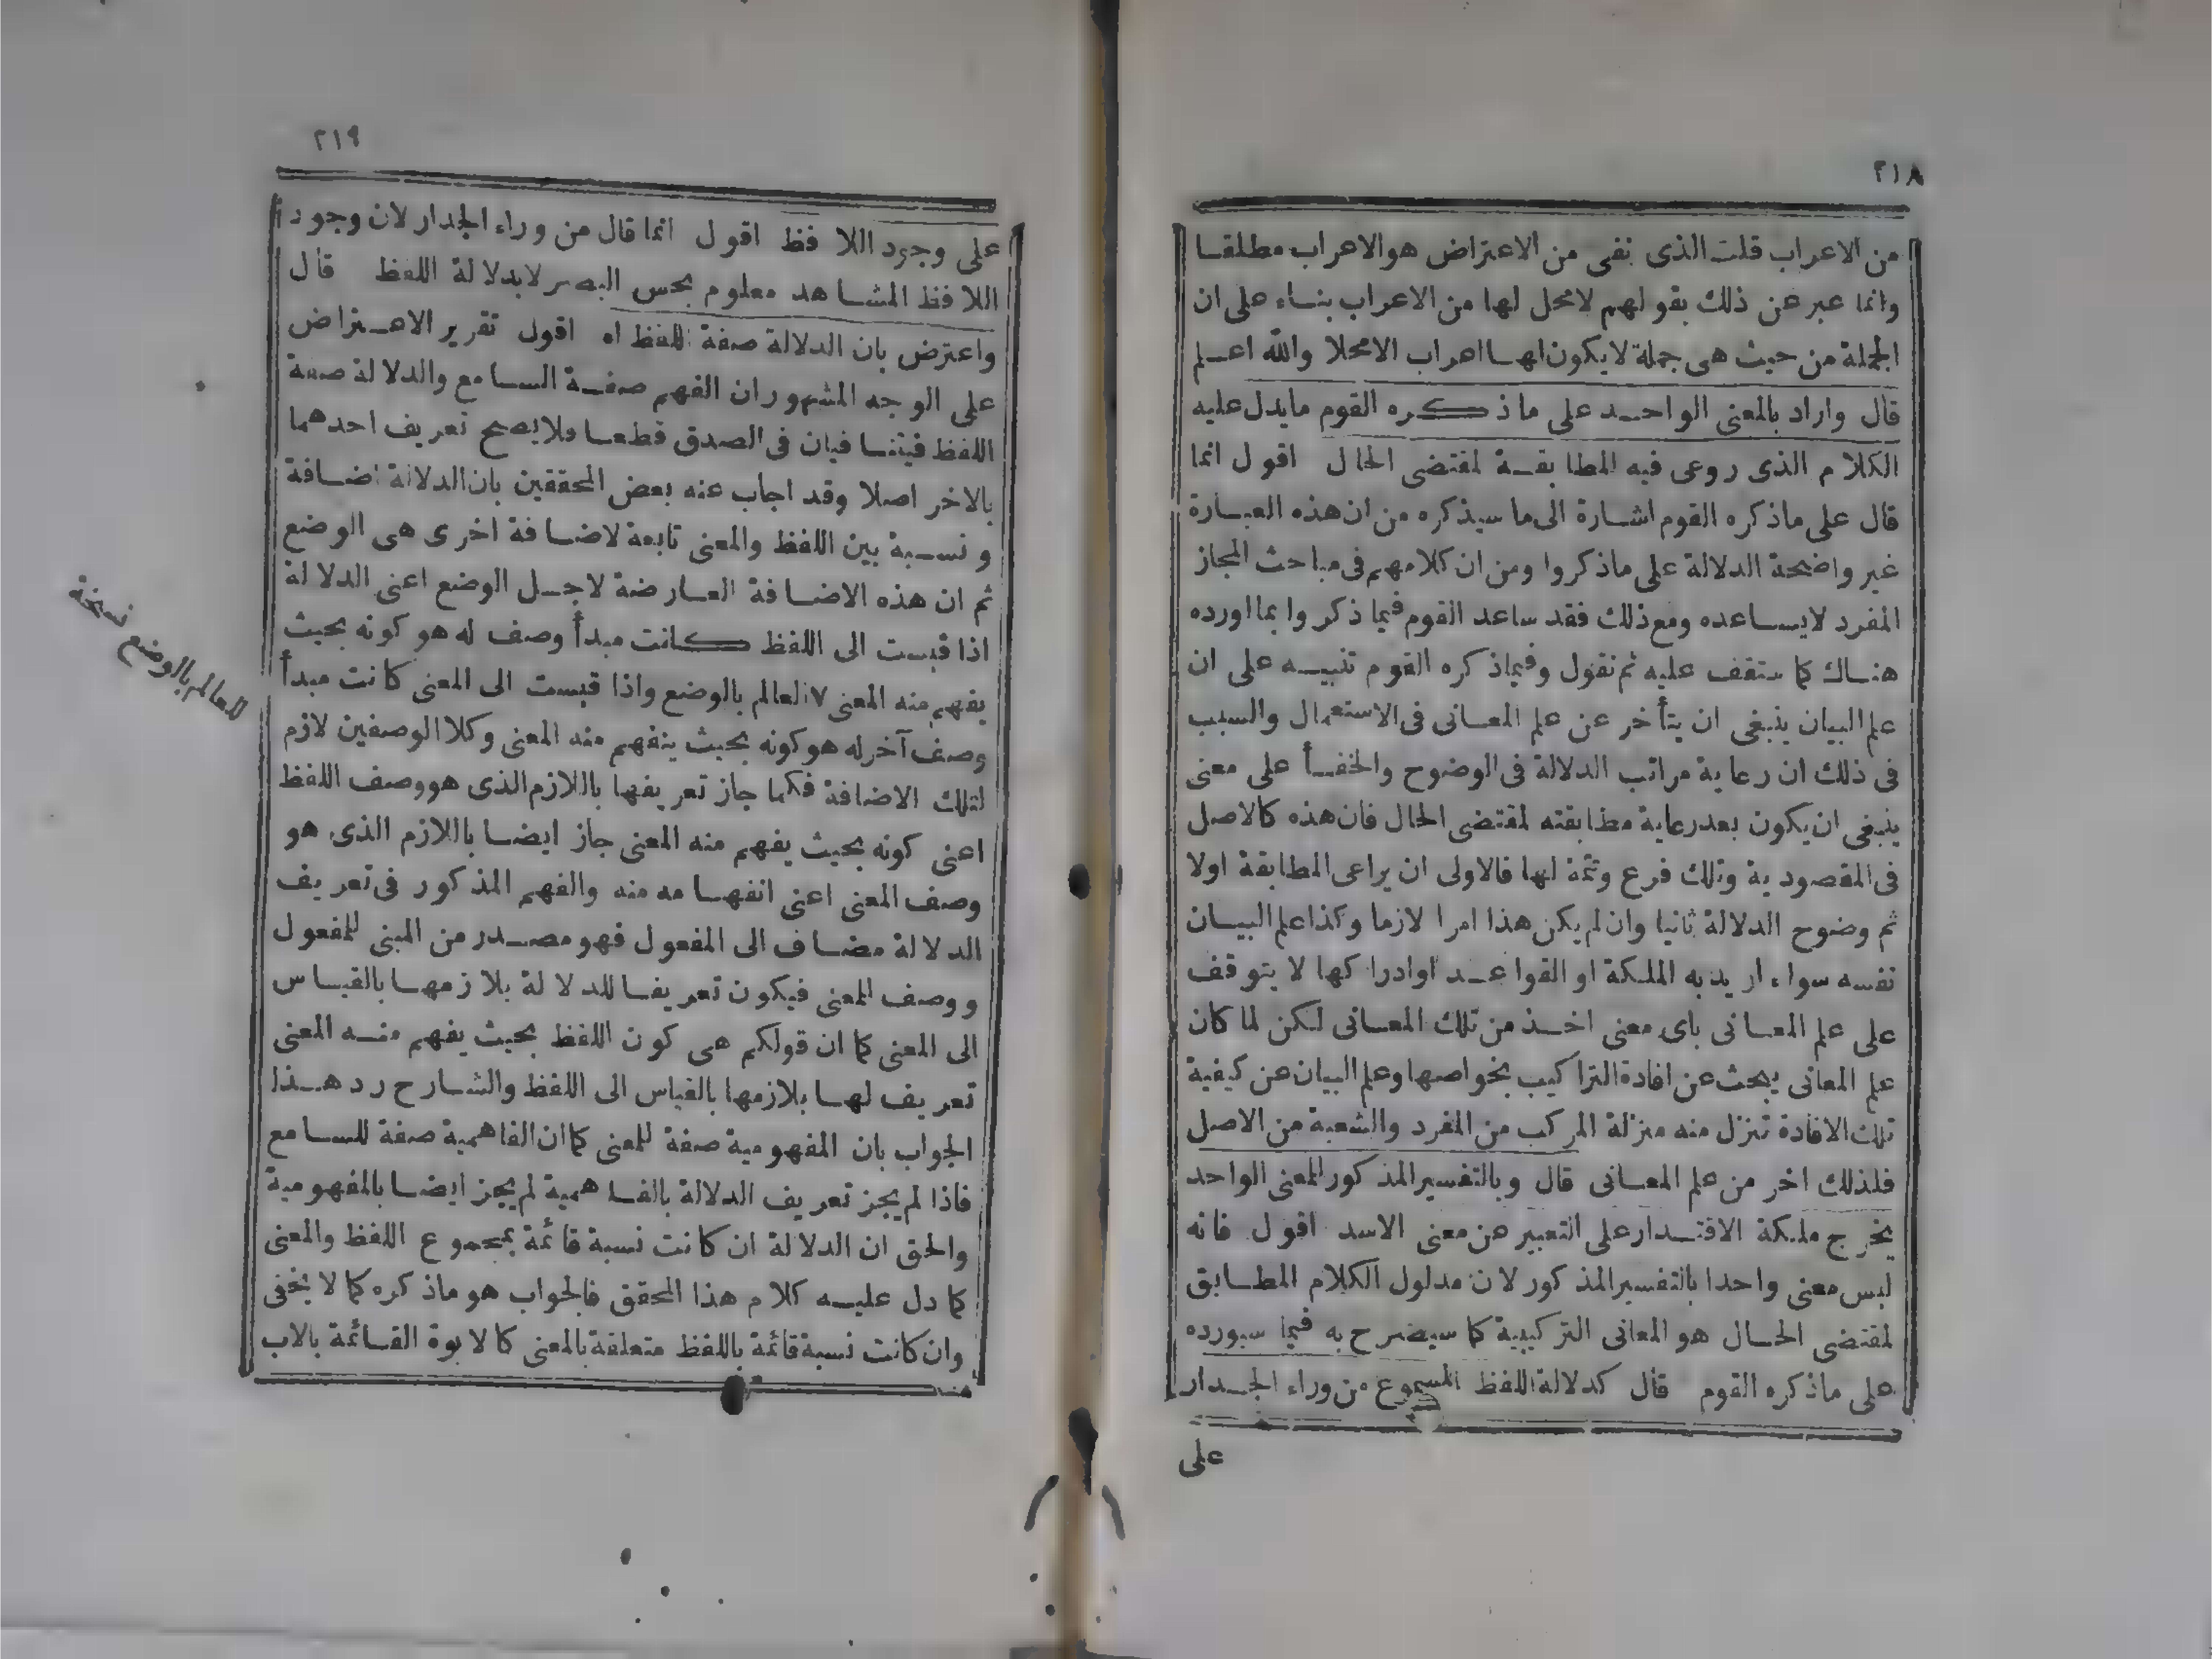 ٢١٨
من الاعراب قلت الذى نفى من الاعتراض هو الاعراب مطلقا
وانما عبر عن ذلك بقولهم لامحل لها من الاعراب بناء على ان
الجملة من حيث هى جملة لايكون لها اعراب الامحلا والله اعلم
قال واراد بالمعنى الواحد على ما ذكره القوم مايدل عليه
الكلام الذى روعى فيه المطابقة لمقتضى الحال اقول انما
قال على ماذكره القوم اشارة الى ما سيذكره من ان هذه العبارة
غير واضحة الدلالة على ماذكروا ومن ان كلامهم فى مباحث المجاز
المفرد لايساعده ومع ذلك فقد ساعد القوم فيما ذكروا بما اورده
هناك كما ستقف عليه ثم نقول وفيما ذكره القوم تنبيه على ان
علم البيان ينبغى ان يتأخر عن علم المعانى فى الاستعمال والسبب
فى ذلك ان رعاية مراتب الدلالة فى الوضوح والخفأ على معنى
ينبغى ان يكون بعد رعاية مطابقته لمقتضى الحال فان هذه كالاصل
فى المقصودية وتلك فرع وتتمة لها فالاولى ان يراعى المطابقة اولا
ثم وضوح الدلالة ثانيا وان لم يكن هذا امرا لازما وكذا علم البيان
نفسه سواء اريد به الملكة او القواعد اوادراكها لا يتوقف
على علم المعانى باى معنى اخذ من تلك المعانى لكن لما كان
علم المعانى يبحث عن افادة التراكيب بخواصها وعلم البيان عن كيفية
تلك الافادة تنزل منه منزلة المركب من المفرد والشعبة من الاصل
فلذلك اخر من علم المعانى قال وبالتفسير المذكور للمعنى الواحد
يخرج ملكة الاقتدار على التعبير عن معنى الاسد اقول فانه
ليس معنى واحدا بالتفسير المذكور لان مدلول الكلام المطابق
لمقتضى الحال هو المعانى التركيبية كما سيصرح به فيما سيورده
على ماذكره القوم قال كدلالة اللفظ المسموع من وراء الجدار
على
٢١٩
على وجود اللافظ اقول انما قال من وراء الجدار لان وجود
اللافظ المشاهد معلوم بحس البصر لابدلالة اللفظ قال
واعترض بان الدلالة صفة للفظ اه اقول تقرير الاعتراض
على الوجه المشهور ان الفهم صفة السامع والدلالة صفة
اللفظ فيتنافيان فى الصدق قطعا ولايصح تعريف احدهما
بالاخر اصلا وقد اجاب عنه بعض المحققين بان الدلالة اضافة
ونسبة بين اللفظ والمعنى تابعة لاضافة اخرى هى الوضع
ثم ان هذه الاضافة العارضة لاجل الوضع اعنى الدلالة
اذا قيست الى اللفظ كانت مبدأ وصف له هو كونه بحيث
يفهم منه المعنى ٧ العالم بالوضع واذا قيست الى المعنى كانت مبدأ
وصف آخر له هو كونه بحيث ينفهم منه المعنى وكلا الوصفين لازم
لتلك الاضافة فكما جاز تعريفها باللازم الذى هو وصف اللفظ
اعنى كونه بحيث يفهم منه المعنى جاز ايضا باللازم الذى هو
وصف المعنى اعنى انفهامه منه والفهم المذكور فى تعريف
الدلالة مضاف الى المفعول فهو مصدر من المبنى للمفعول
ووصف المعنى فيكون تعريفا للدلالة بلازمها بالقياس
الى المعنى كما ان قولكم هى كون اللفظ بحيث يفهم منه المعنى
تعريف لها بلازمها بالقياس الى اللفظ والشارح رد هذا
الجواب بان المفهومية صفة للمعنى كما ان الفاهمية صفة للسامع
فاذا لم يجز تعريف الدلالة بالفاهمية لم يجز ايضا بالمفهومية
والحق ان الدلالة ان كانت نسبة قائمة بمجموع اللفظ والمعنى
كما دل عليه كلام هذا المحقق فالجواب هو ماذكره كما لا يخفى
وان كانت نسبة قائمة باللفظ متعلقة بالمعنى كالابوة القائمة بالاب
للعالم بالوضع نسخة